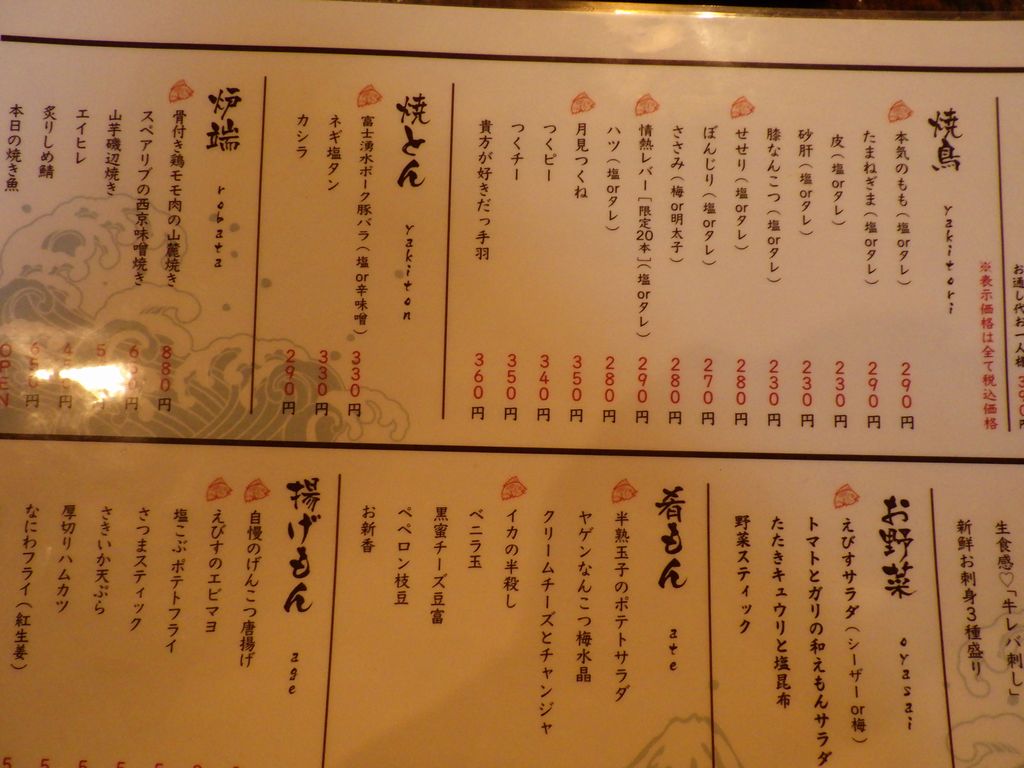 お通し代お一人様 390円
※表示価格は全て税込価格
焼鳥 yakitori
本気のもも（塩orタレ） 290円
たまねぎま（塩orタレ） 290円
皮（塩orタレ） 230円
砂肝（塩orタレ） 230円
膝なんこつ（塩orタレ） 230円
せせり（塩orタレ） 280円
ぼんじり（塩orタレ） 270円
ささみ（梅or明太子） 280円
情熱レバー［限定20本］（塩orタレ） 290円
ハツ（塩orタレ） 280円
月見つくね 350円
つくピー 340円
つくチー 350円
貴方が好きだっ手羽 360円
焼とん yakiton
富士湧水ポーク豚バラ（塩or辛味噌） 330円
ネギ塩タン 330円
カシラ 290円
炉端 robata
骨付き鶏モモ肉の山麓焼き 880円
スペアリブの西京味噌焼き 円
山芋磯辺焼き 円
エイヒレ 円
炙りしめ鯖 円
本日の焼き魚 OPEN
生食感♡「牛レバ刺し」
新鮮お刺身3種盛り
お野菜 oyasai
えびすサラダ（シーザーor梅）
トマトとガリの和えもんサラダ
たたきキュウリと塩昆布
野菜スティック
肴もん ate
半熟玉子のポテトサラダ
ヤゲンなんこつ梅水晶
クリームチーズとチャンジャ
イカの半殺し
ベニラ玉
黒蜜チーズ豆富
ペペロン枝豆
お新香
揚げもん age
自慢のげんこつ唐揚げ
えびすのエビマヨ
塩こぶポテトフライ
さつまスティック
さきいか天ぷら
厚切りハムカツ
なにわフライ（紅生姜）